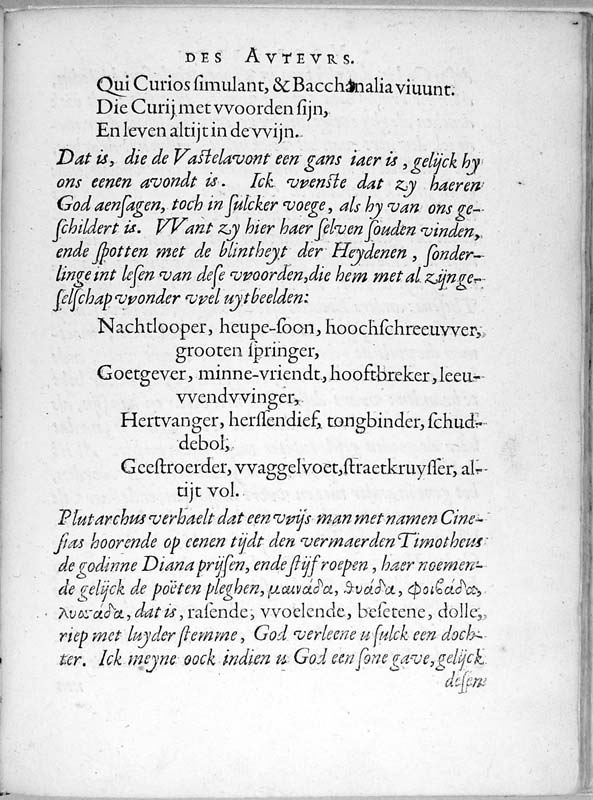 DES AVTEVRS.
Qui Curios ſimulant, & Bacchanalia viuunt.
Die Curij met vvoorden ſijn,
En leven altijt in de vvijn.
Dat is, die de Vaſtelavont een gans iaer is, gelijck hy
ons eenen avondt is. Ick vvenſte dat zy haeren
God aenſagen, toch in ſulcker voege, als hy van ons ge-
ſchildert is. VVant zy hier haer ſelven ſouden vinden,
ende ſpotten met de blintheyt der Heydenen, ſonder-
linge int leſen van deſe vvoorden, die hem met al zijn ge-
ſelſchap vvonder vvel uytbeelden:
Nachtlooper, heupe-ſoon, hoochſchreeuvver,
grooten ſpringer,
Goetgever, minne-vriendt, hooftbreker, leeu-
vvendvvinger,
Hertvanger, herſſendief, tongbinder, ſchud-
debol,
Geeſtroerder, vvaggelvoet, ſtraetkruyſſer, al-
tijt vol.
Plutarchus verhaelt dat een vvijs man met namen Cine-
ſias hoorende op eenen tijdt den vermaerden Timotheus
de godinne Diana prijſen, ende ſtijf roepen, haer noemen-
de gelijck de poëten pleghen, μαινάδα, θυάδα, φοιβάδα,
λυσσάδα, dat is, raſende, vvoelende, beſetene, dolle,
riep met luyder ſtemme, God verleene u ſulck een doch-
ter. Ick meyne oock indien u God een ſone gave, gelijck
deſen